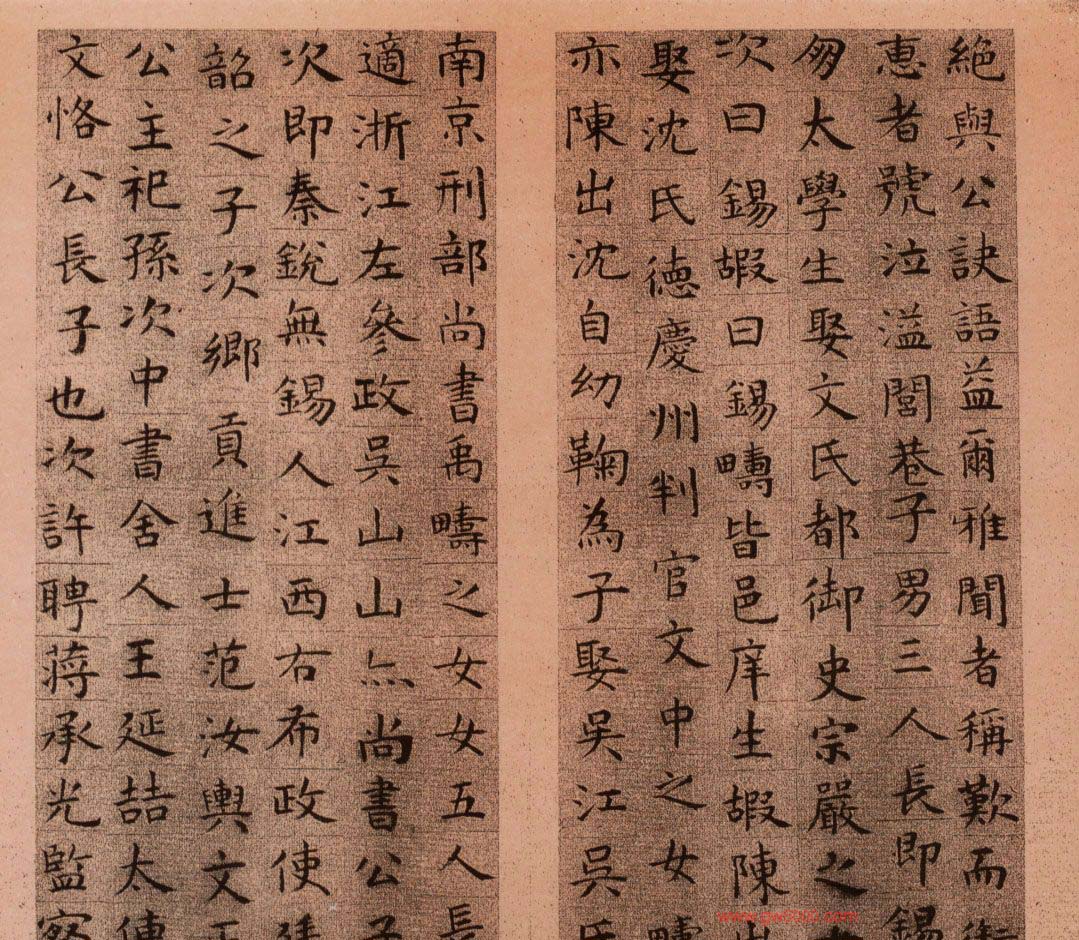 絕與公訣語益爾雅聞者稱歎而
惠者號泣溢閭巷子男三人長即錫
匆太學生娶文氏都御史宗嚴之
次曰錫嘏曰錫疇皆邑庠生嘏陳出
娶沈氏德慶州判官文中之女疇
亦陳出沈自幼鞠為子娶吳江吳氏
南京刑部尚書禹疇之女女五人長
適浙江左參政吳山山亦尚書公子
次即秦銳無錫人江西右布政使
韶之子次鄉貢進士范汝輿文正
公主祀孫次中書舍人王延喆太傅
文恪公長子也次許聘蔣承光監察
www.gw8000.com